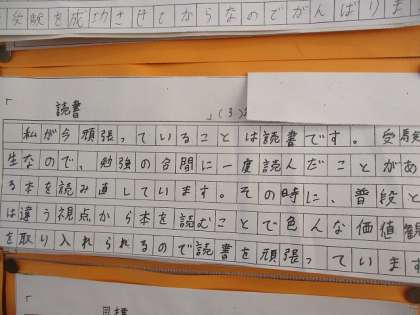 受験を成功させてからなのでがんばりま
「 読書 」(3)
私が今頑張っていることは読書です。受験
生なので、勉強の合間に一度読んだことがあ
る本を読み直しています。その時に、普段と
は違う視点から本を読むことで色んな価値観
を取り入れられるので読書を頑張っています
「 目標